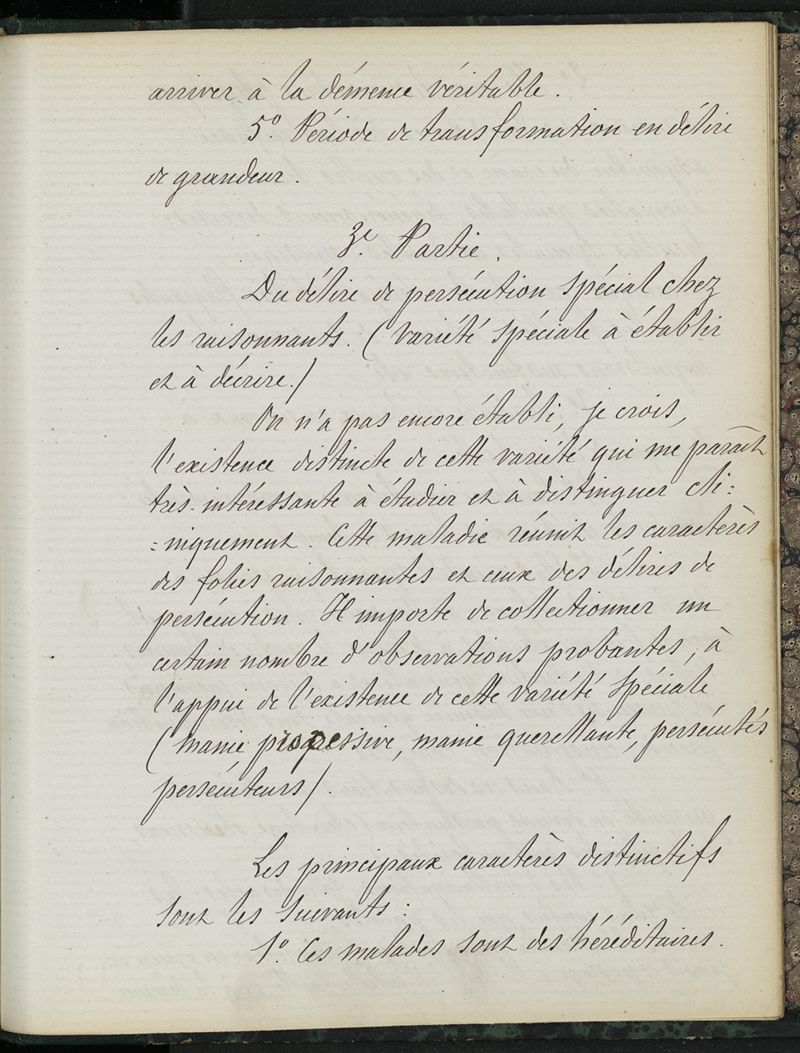 arriver à la démence véritable.
5º. Période de transformation en délire
de grandeur.
3e. Partie.
Du délire de persécution spécial chez
les raisonnants. (Variété spéciale à établir
et à décrire.)
On n'a pas encore établi, je crois,
l'existence distincte de cette variété qui me paraît
très-intéressante à étudier et à distinguer cli=
=niquement. Cette maladie réunit les caractères
des folies raisonnantes et ceux des délires de
persécution. Il importe de collectionner un
certain nombre d'observations probantes, à
l'appui de l'existence de cette variété spéciale
(manie progressive, manie querellante, persécutés
persécuteurs).
Les principaux caractères distinctifs
sont les suivants :
1º. Ces malades sont des héréditaires.